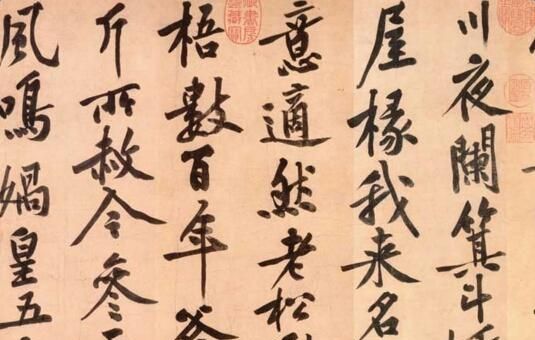 川夜闌箕斗
屋椽我来名
意適然老松
梧數百年
斤所赦今參
風鳴媧皇五